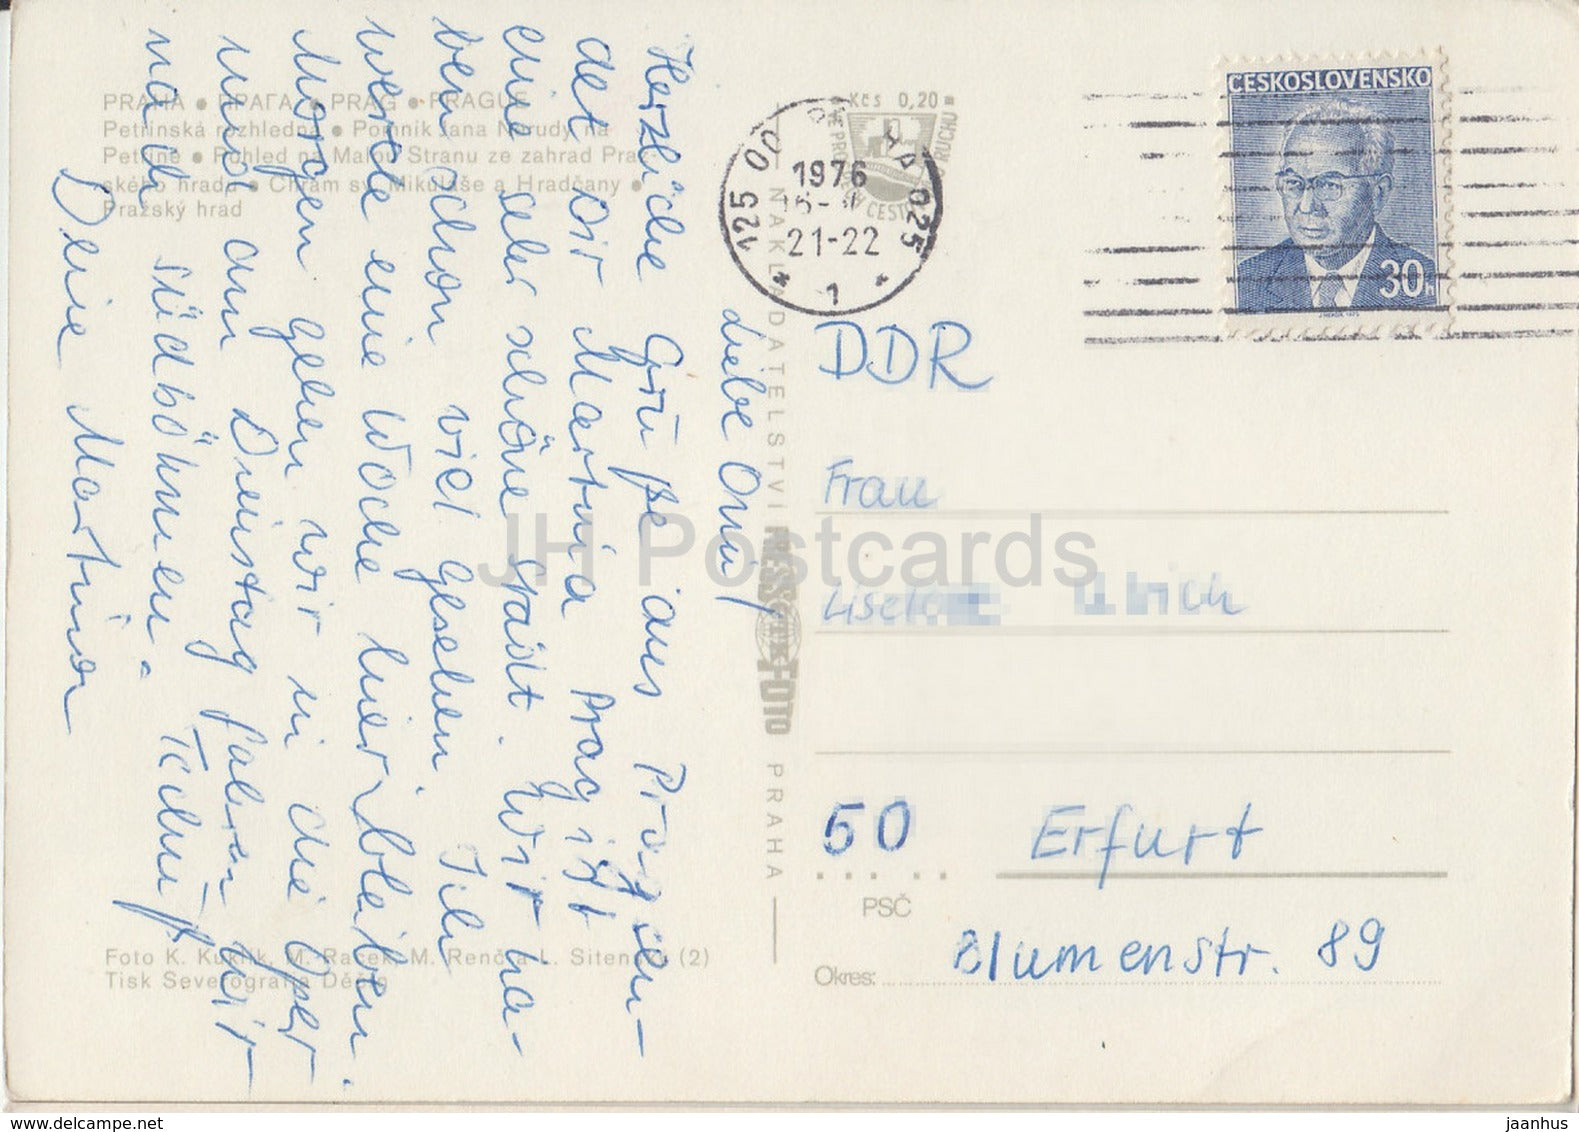 PRAHA • ПРАГА • PRAG • PRAGUE
Petřínská rozhledna • Pomník Jana Nerudy na
Petříně • Pohled na Malou Stranu ze zahrad Praž-
ského hradu • Chrám sv. Mikuláše a Hradčany •
Pražský hrad
Liebe Omi,
Herzliche Grüße aus Prag sen-
det Dir Martina Prag ist
eine sehr schöne Stadt. Wir ha-
ben schon viel gesehen. Ich
werde eine Woche hier bleiben.
Morgen gehen wir in die Oper
und am Dienstag fahren wir
nach Südböhmen.
Tschüß
Deine Martina
Foto K. Kuklík, M. Raček, M. Renč a L. Sitenský (2)
Tisk Severografia Děčín
NAKLADATELSTVÍ PRESSFOTO PRAHA
Kčs 0,20
1976
21-22
1
125
025
ČESKOSLOVENSKO
30h
DDR
Frau
50 Erfurt
PSČ
Blumenstr. 89
Okres:
JH Postcards
delcampe.net
jaanhus